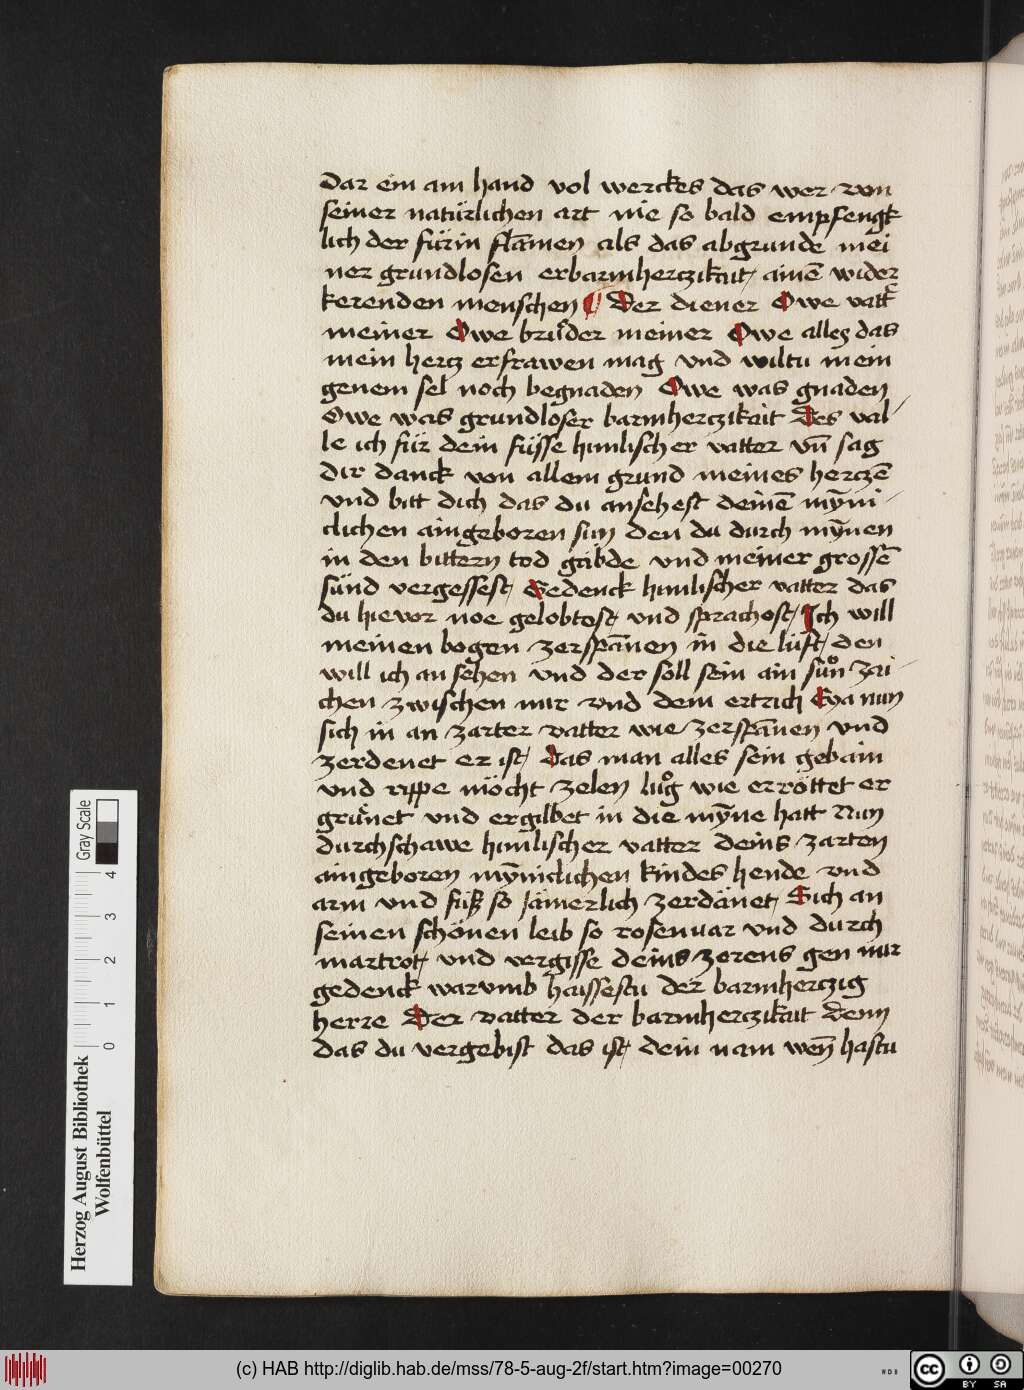 Dar ein am hand vol werckes das wer von
seiner natürlichen art nie so bald empfengk
lich der fürin flāmen als das abgrunde mei
ner grundlosen erbarmherczikait, ainē wider
kerenden menschen ¶ Der diener Owe vattr
meiner Owe bruͦder meiner Owe alles das
mein hercz erfrawen mag vnd wiltu mein
genem sel noch begnaden Owe was gnaden
Owe was grundloser barmherczikait Des val
le ich für dein füsse himlischer vatter vn̄ sag
dir danck von allem grund meines herczē
vnd bitt dich das du ansehest deinē mȳni
clichen aingeboren sun den du durch mȳnen
in den bittern tod gäbde vnd meiner grossē
sünd vergessest, Gedenck himlischer vatter das
du hievor noe gelobtost vnd sprachost, Ich will
meinen bogen zerspānen in die lüft, den
will ich an sehen vnd der soll sein ain suͦn zai
chen zwischen mir vnd dem ertrich Eya nun
sich in an zarter vatter wie zerspānen vnd
zerdenet er ist, Das man alles sein gebain
vnd rippe möcht zelen luͦg wie erröttet er
grünet vnd ergilbet in die mȳne hatt Nun
durchschawe himlischer vatter deins zarten
aingeboren mȳniclichen kindes hende vnd
arm vnd füß so jämerlich zerdänet, Sich an
seinen schönen leib so rosenuar vnd durch
martrot, vnd vergisse deins zorens gen mir
gedenck warumb haissestu der barmherczig
herre Der vatter der barmherczikait Denn
das du vergebist das ist, dein nam wen̄ hastu
Herzog August Bibliothek
Wolfenbüttel
0 1 2 3 4
Gray Scale
(c) HAB http://diglib.hab.de/mss/78-5-aug-2f/start.htm?image=00270
WDB
cc BY SA